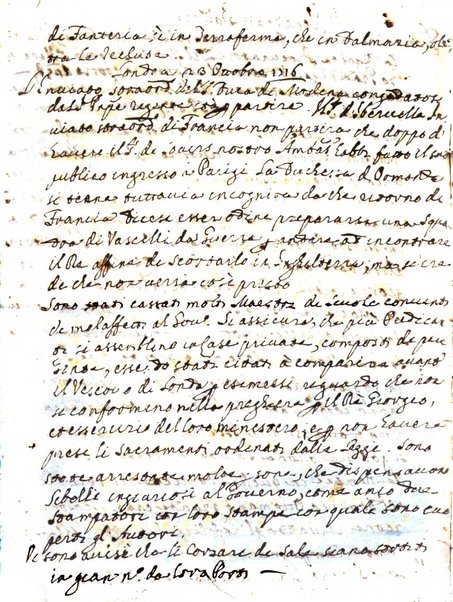 di Fanteria sì in Terraferma, che in Dalmazia, ol
tra le reclute
Londra 23 Ottobre 1716
Inviato straord. del S. Duca di Modena
dal Pnpe regente p partire. d'Iberville In
viato straord. di Francia non partirà che doppo d'
havere il S. di nostro Ambas. fatto il suo
publico ingresso a Parigi. La Duchessa d'
si tiene tuttavia incognita da che ritornò di
Francia. Dicesi esser ordine prepararsi una Squa
dra di Vascelli da Guerra p andare ad incontrare
il Re affine di scortarlo in Inghilterra, ma si cre
de che non verrà così presto
Sono stati cassati molti Maestri di Scuole convinti
di mal affetti al Gov. Si assicura, che più Predicat
ori si assentino in Case private, composti
essendo stati citati à comparire avanti
il Vescovo di Londra, e riguardo che non
si conformino nella preghiera p il Re Giorgio,
et essercitio del loro ministero, e p non havere
prese li Sacramenti ordinati dalle Leggi. Sono
state arrestate molte psone, che dispensavano
libelli ingiuriosi al Governo, come anco due
Stampatori con loro Stampe con quale sono
gl' Autori
Vi sono avisi che li Corsari di Salè siano sortiti
in gran n.º da loro Porti —